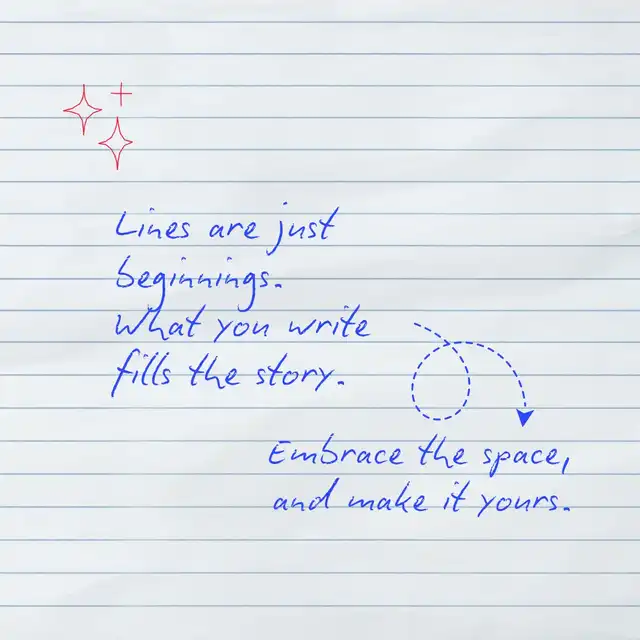 Lines are just
beginnings.
What you write
fills the story.
Embrace the space,
and make it yours.